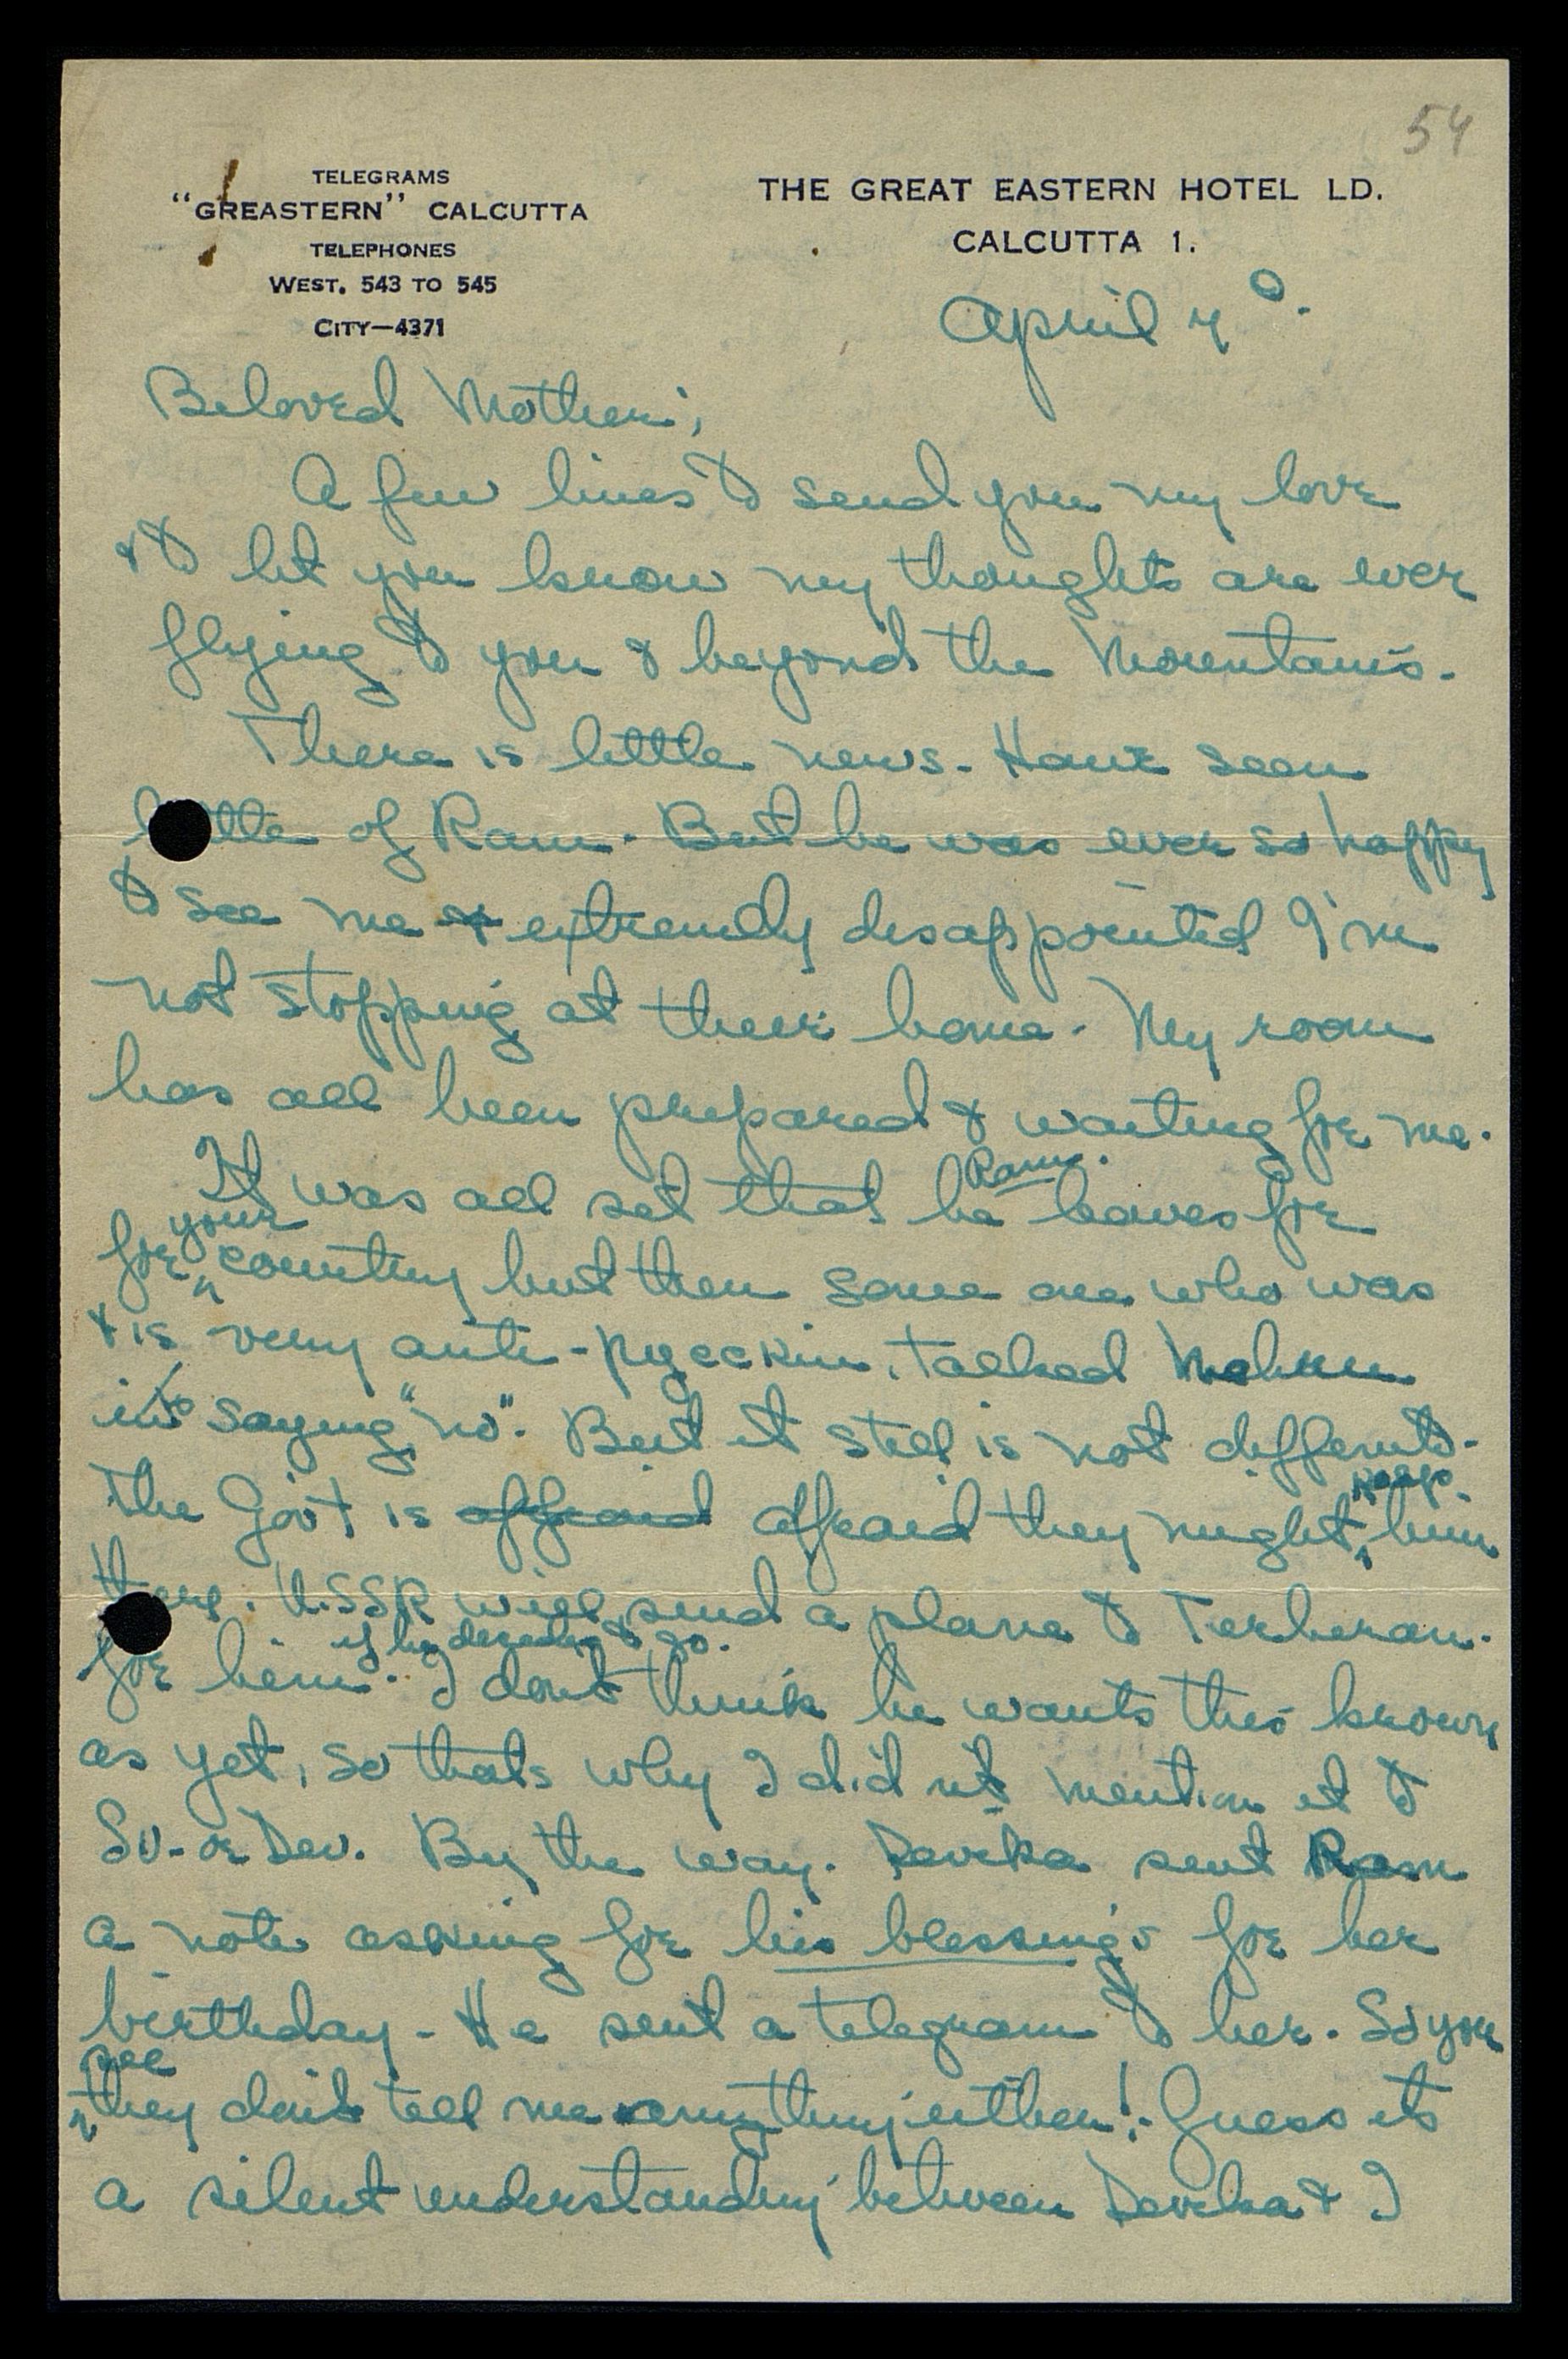 54
TELEGRAMS
"GREASTERN" CALCUTTA
TELEPHONES
WEST. 543 TO 545
CITY—4371
THE GREAT EASTERN HOTEL LD.
CALCUTTA 1.
April 4°.
Beloved Mother;
A few lines to send you my love
& to let you know my thoughts are ever
flying to you & beyond the Mountains.
There is little news. Have seen
little of Ram. But he was ever so happy
to see me & extremely disappointed I'm
not stopping at their home. My room
has all been prepared & waiting for me.
It was all set that he Ram. leaves for
for your country but then some one who was
& is very anti-русским, talked Nehru
into saying "no". But it still is not
The Gov't is affraid they might keep him
there. USSR will send a plane to Terheran.
for him if he decides to go. I don't think he wants this known
as yet, so thats why I did not mention it to
Sv. or Dev. By the way. Devika sent Ram
a note asking for his blessings for her
birthday - He sent a telegram to her. So you
see they don't tell me anything either! - Guess its
a silent understanding between Devika & I